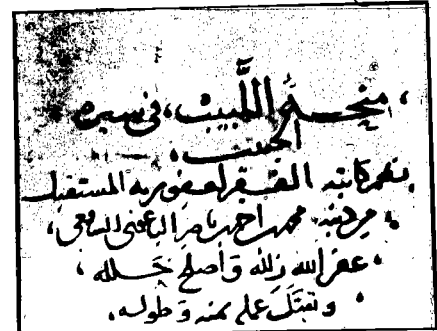 منحة اللَّبيب، في سيرة
الحبيب،
نظم كاتبه الفقير لعفو ربه المستقيل
من ذنبه محمد بن احمد بن ناصر الباعوني الشافعي،
غفر الله زلله وأصلح خَلله،
وتقبَّل عمله بمنه وطوله.